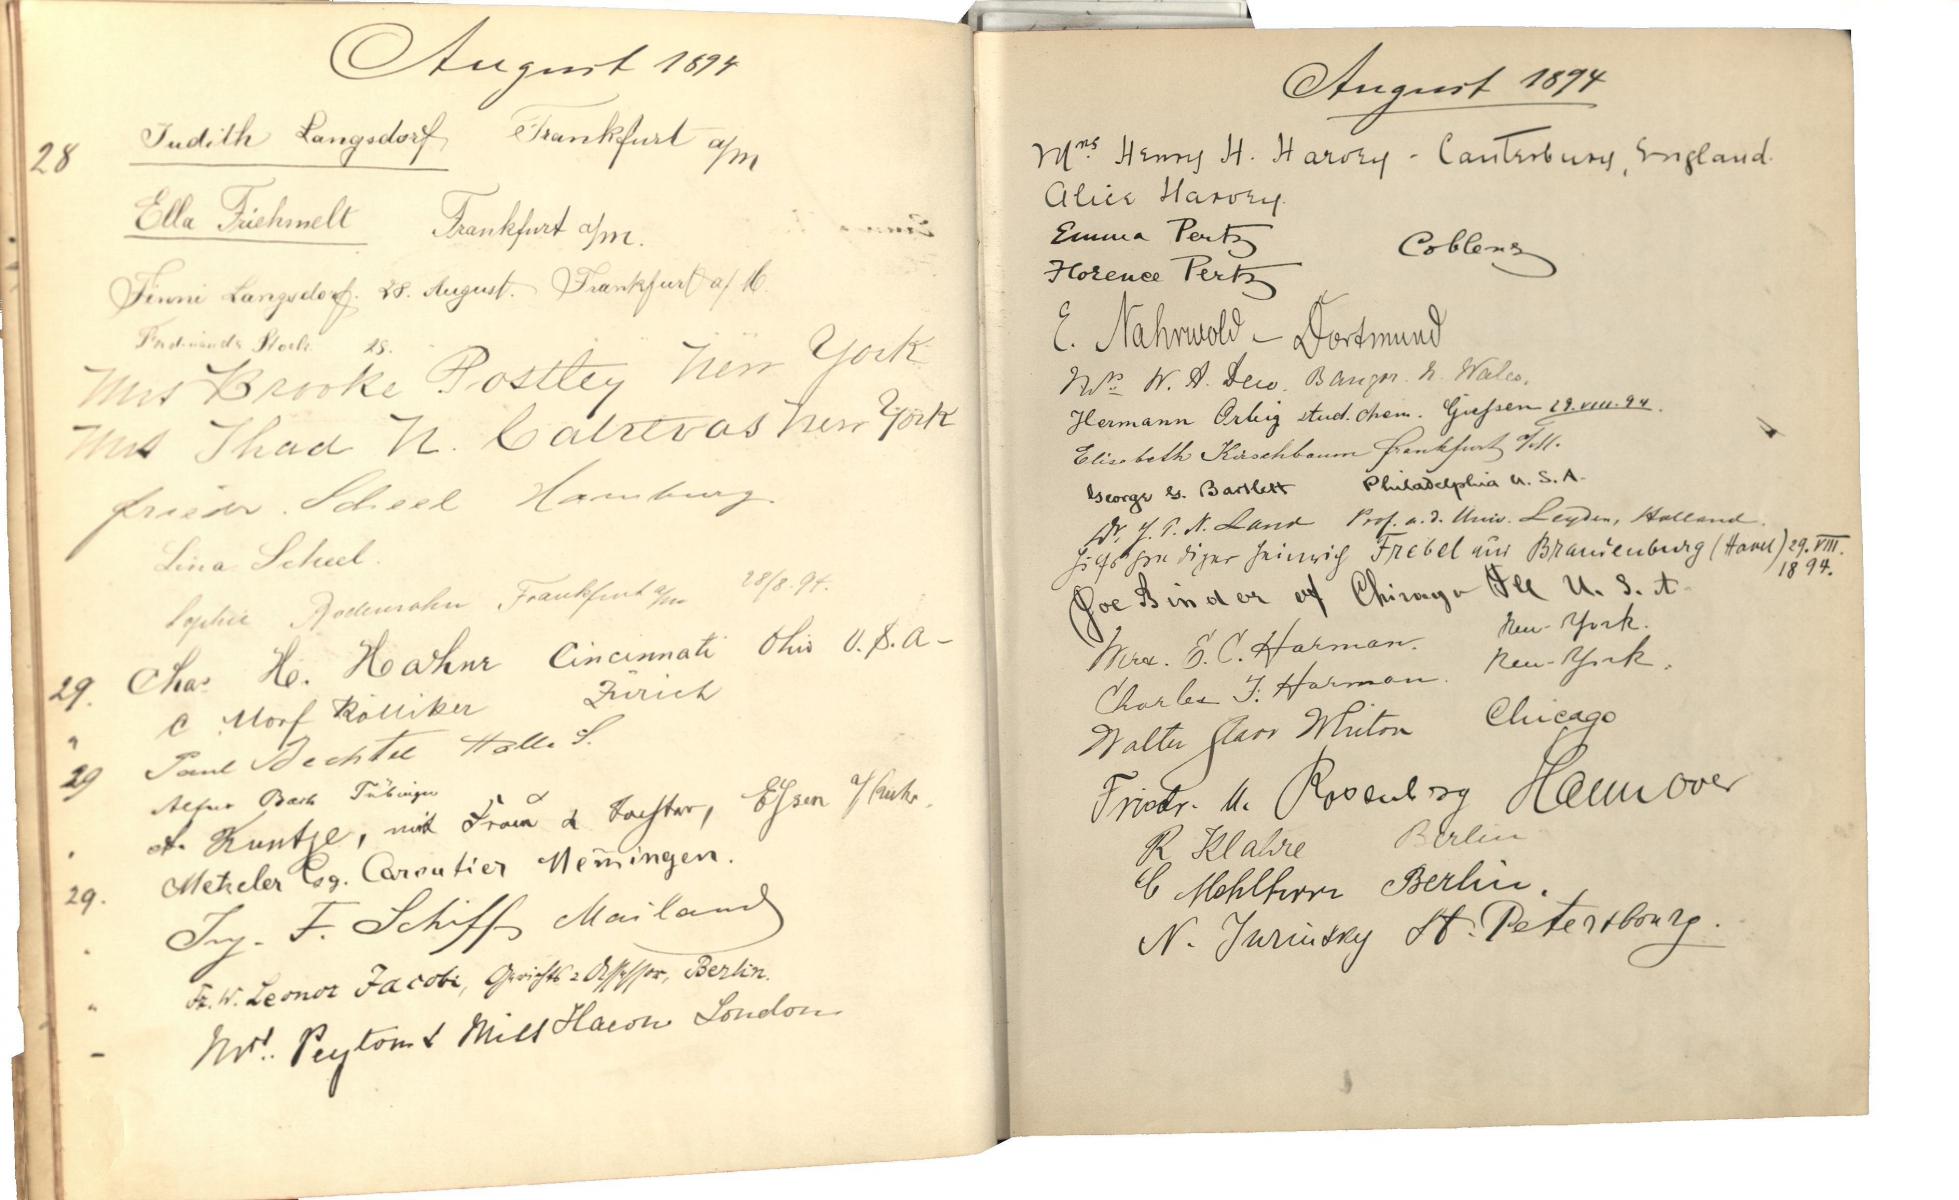 August 1894
28 Judith Langsdorf Frankfurt a/M
Ella Friehmelt Frankfurt a/M.
Jinni Langsdorf. 28. August. Frankfurt a/M.
28.
Mrs Brooke Postley New York
Mrs Thad N. New York
Scheel Hamburg.
Lina Scheel.
Sophie Frankfurt a/m 28/8. 94.
29. Chas H. Hahne Cincinnati Ohio U.S.A-
" C Morf Kölliker Zürich
29 Paul Bechtel Halle S.
Bach Tübingen
A. Kuntze, mit Frau & Tochter, Essen a/Ruhr.
29. Metzeler Memingen.
Ing. F. Schiff Mailand
Fr. W. Leonor Jacobi, Gerichts-Assessor, Berlin.
Mrs. Peyton & Miss Hacon London
August 1894
Mrs Henry H. Harvey - Canterbury, England.
Alice Harvey.
Emma Pertz Coblenz
Florence Pertz
E. Nahrwold - Dortmund
W. A. Dew. Bangor. N. Wales.
Hermann Orbig stud. chem. Giessen 29.VIII.94.
Elisabeth Kirschbaum Frankfurt a/M.
George G. Bartlett Philadelphia U.S.A.
Dr. J. P. N. Land Prof. a. d. Univ. Leyden, Holland.
Heinrich Frebel aus Brandenburg (Havel) 29. VIII.
1894.
Joe Binder of Chicago Ill U. S. A.
Mrs. E. C. Harman. New-York.
Charles F. Harman. New-York.
Walter Whiton Chicago
Friedr. u. Rosenberg Hannover
R Klahre Berlin
C Berlin.
N. Jurinsky St. Petersbourg.